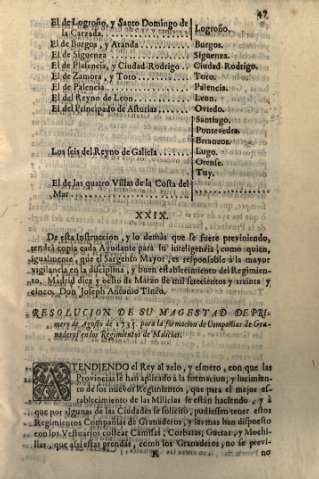 47
El de Logroño, y Santo Domingo de la Calzada. Logroño.
El de Burgos, y Aranda Burgos.
El de Siguenza Siguenza.
El de Plasencia, y Ciudad-Rodrigo. Ciudad-Rodrigo.
El de Zamora, y Toro Toro.
El de Palencia Palencia.
El del Reyno de Leon Leon.
El del Principado de Asturias Oviedo.
Los seis del Reyno de Galicia
Santiago.
Pontevedra.
Betanzos.
Lugo.
Orense.
Tuy.
El de las quatro Villas de la Costa del Mar
XXIX.
De esta Instruccion, y lo demàs que se fuere previniendo,
tendrà copia cada Ayudante para su inteligencia, como quien,
igualmente, que el Sargento Mayor, es responsable à la mayor
vigilancia en la disciplina, y buen establecimiento del Regimien-
to. Madrid diez y ocho de Marzo de mil setecientos y treinta y
cinco. Don Joseph Antonio Tinèo.
RESOLUCION DE SU MAGESTAD DE PRI-
mero de Agosto de 1735. para la formacion de Compañias de Gra-
naderos en los Regimientos de Milicias.
ATENDIENDO el Rey al zelo, y esmero, con que las
Provincias se han aplicado à la formacion, y lucimien-
to de los nuevos Regimientos, que para el mejor es-
tablecimiento de las Milicias se estàn haciendo, y à
que por algunas de las Ciudades se solicitò, pudiessen tener estos
Regimientos Compañias de Granaderos, y las mas han dispuesto
con los Vestuarios costear Camisas, Corbatas, Guetar, y Mochi-
llas, que assi estas prendas, como los Granaderos, no se previ-
K no